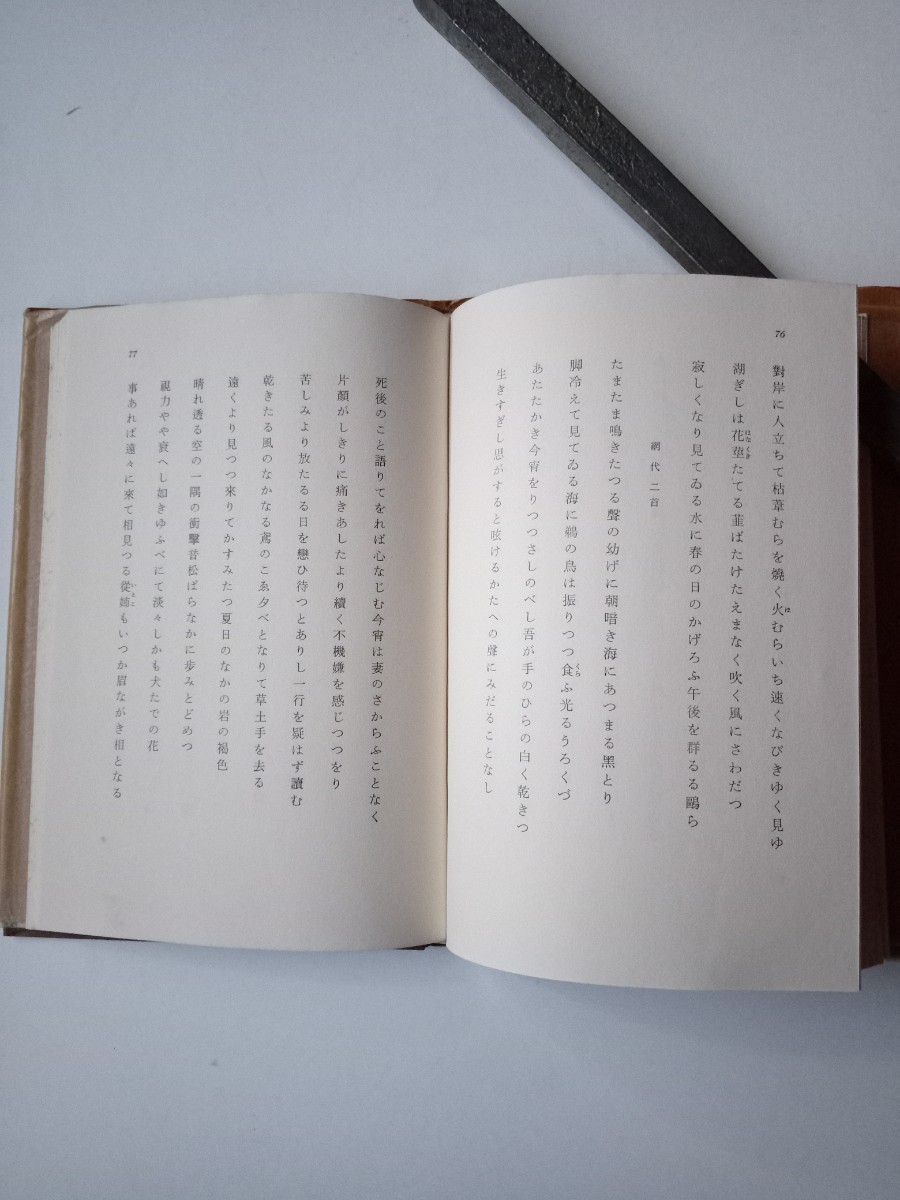 76
對岸に人立ちて枯葦むらを燒く火むらいち速くなびきゆく見ゆ
湖ぎしは花莖たてる韮ばたけたえまなく吹く風にさわだつ
寂しくなり見てゐる水に春の日のかげろふ午後を群るる鷗ら
網代二首
たまたま鳴きたつる聲の幼げに朝暗き海にあつまる黑とり
脚冷えて見てゐる海に鵜の鳥は振りつつ食ふ光るうろくづ
あたたかき今宵をりつつさしのべし吾が手のひらの白く乾きつ
生きすぎし思がすると呟けるかたへの聲にみだることなし
死後のこと語りてをれば心なじむ今宵は妻のさからふことなく
片顏がしきりに痛きあしたより續く不機嫌を感じつつをり
苦しみより放たるる日を戀ひ待つとありし一行を疑はず讀む
乾きたる風のなかなる鳶のこゑ夕べとなりて草土手を去る
遠くより見つつ來りてかすみたつ夏日のなかの岩の褐色
晴れ透る空の一隅の衝擊音松ばらなかに歩みとどめつ
視力やや衰へし如きゆふべにて淡々しかも犬たでの花
事あれば遠々に來て相見つる從姉もいつか眉ながき相となる
77